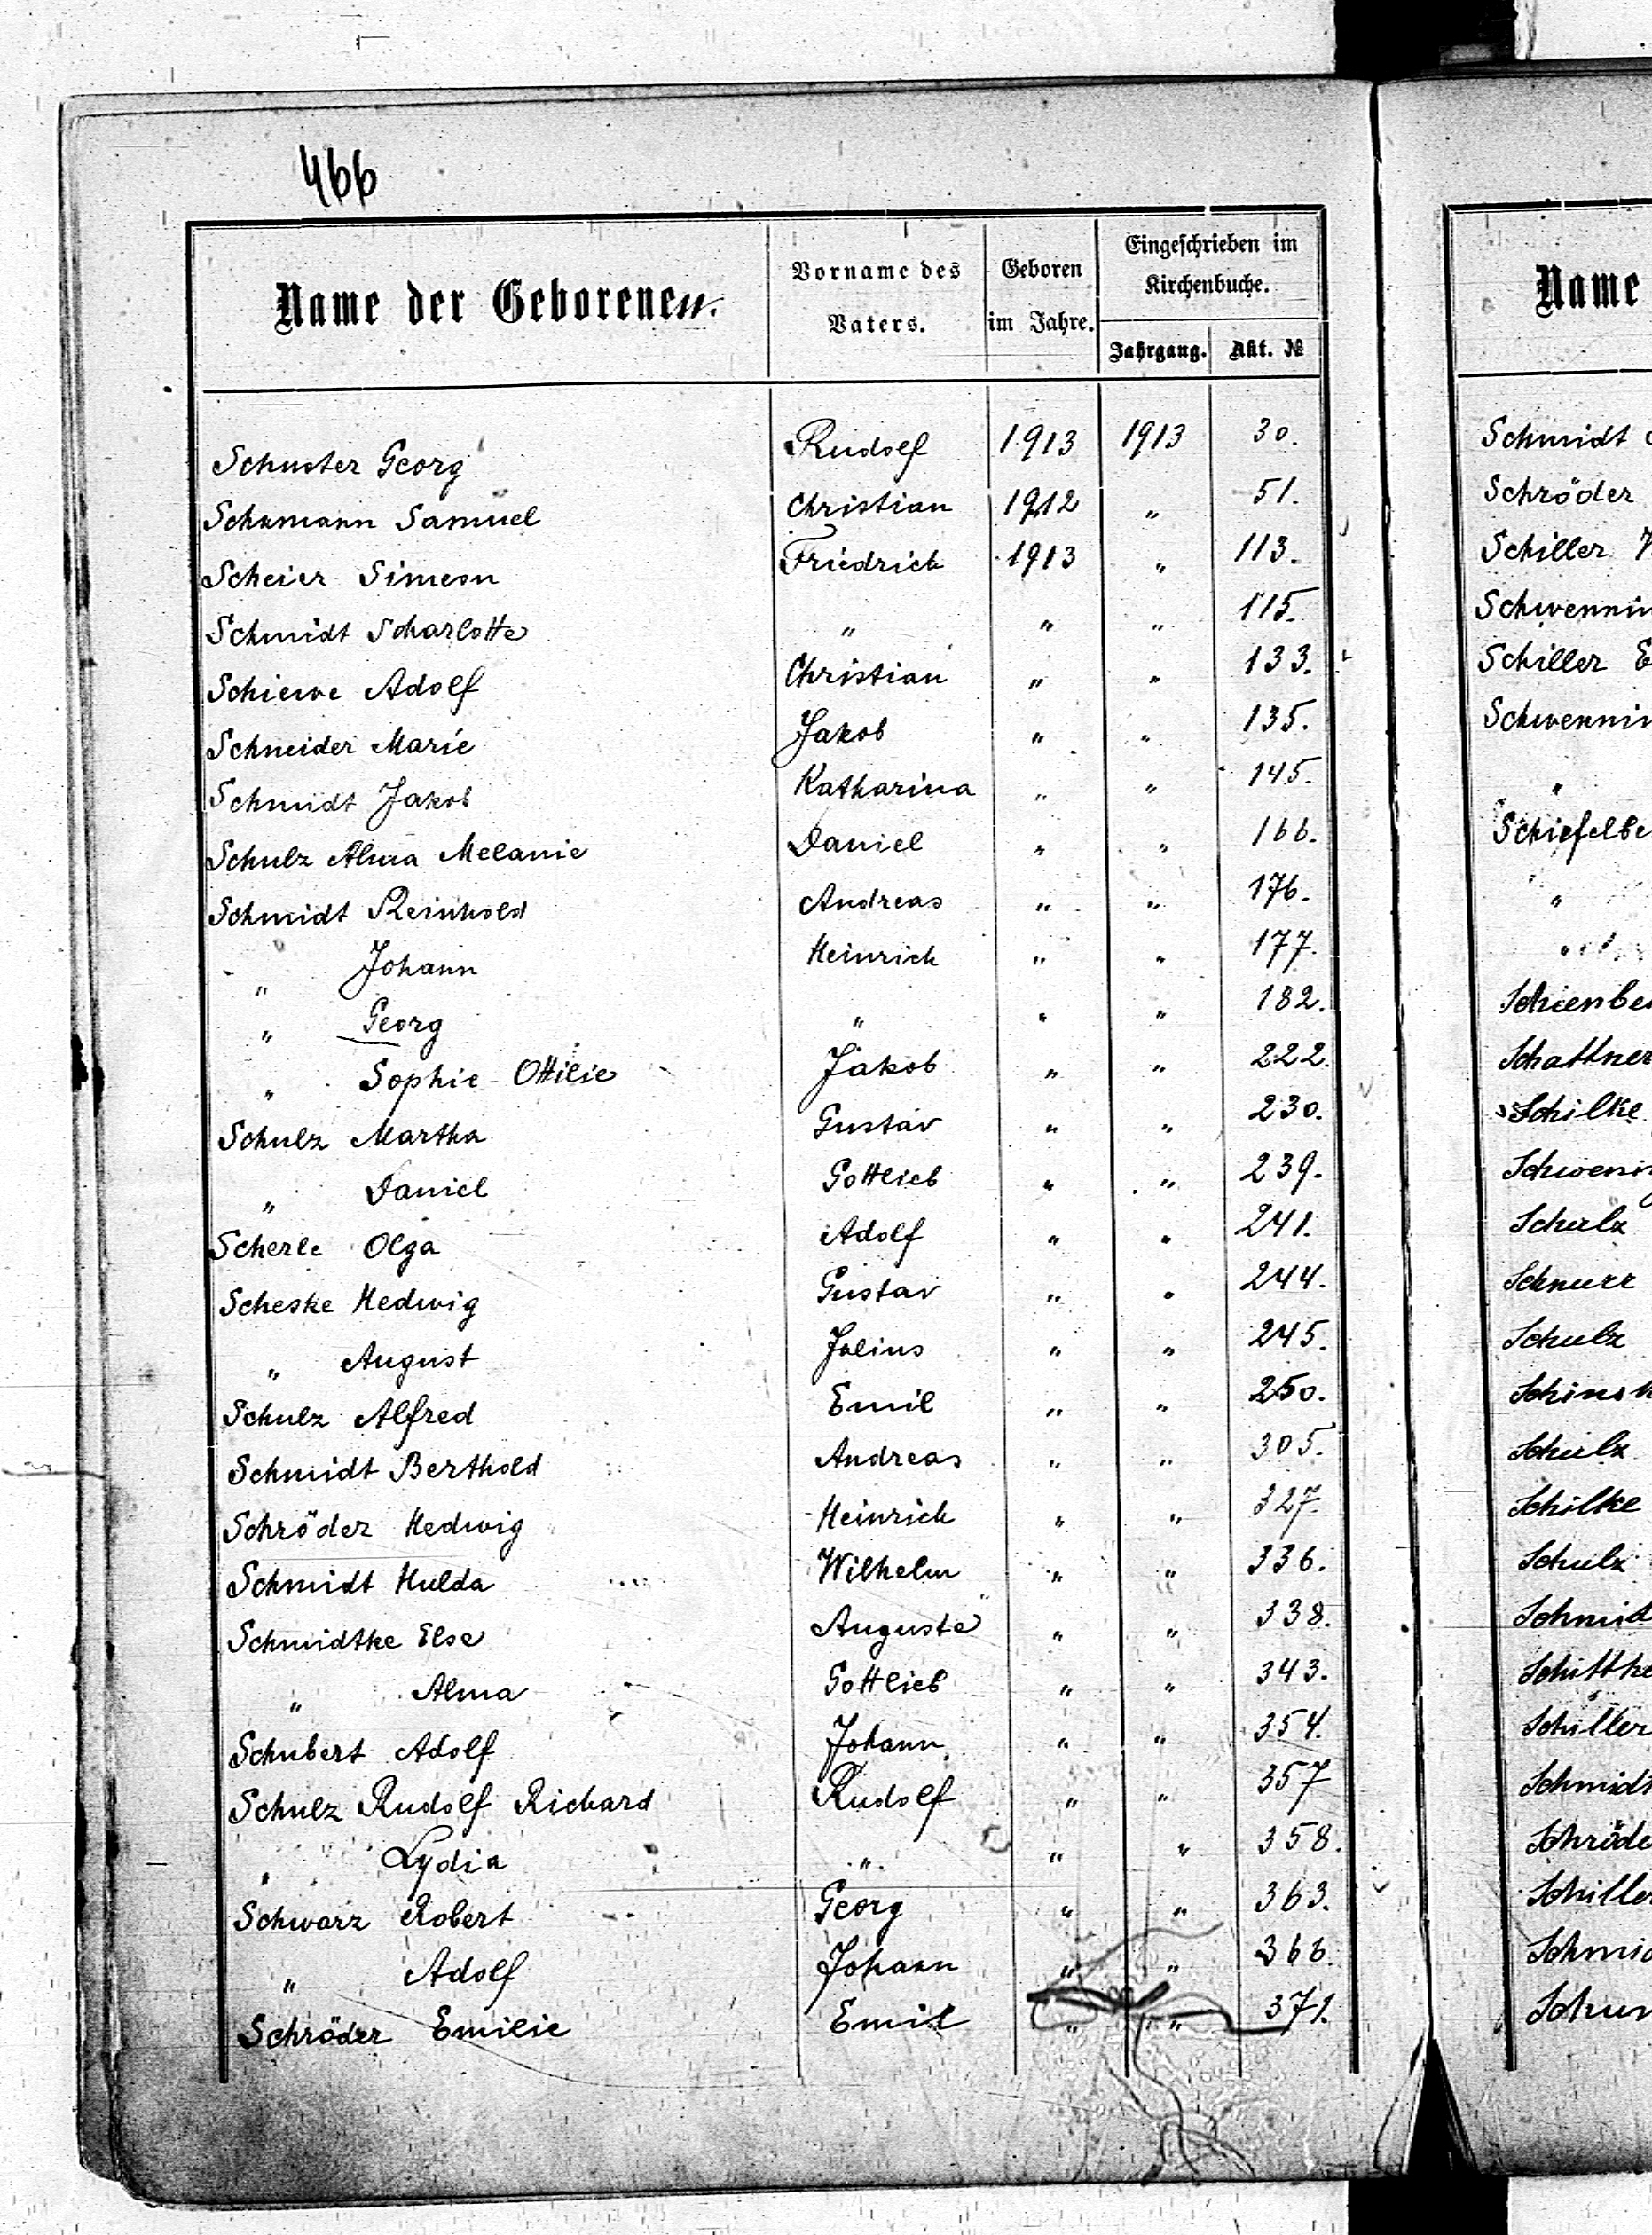 466
Name der Geborenen. Vorname des Vaters. Geboren im Jahre. Eingeschrieben im Kirchenbuche. Jahrgang. Akt. №
Schuster Georg Rudolf 1913 1913 30.
Schumann Samuel Christian 1912 " 51.
Scheier Simeon Friedrich 1913 " 113.
Schmidt Scharlotte " " " 115.
Schiewe Adolf Christian " " 133.
Schneider Marie Jakob " " 135.
Schmidt Jakob Katharina " " 145.
Schulz Alma Melanie Daniel " " 166.
Schmidt Reinhold Andreas " " 176.
" Johann Heinrich " " 177.
" Georg " " " 182.
" Sophie-Ottilie Jakob " " 222.
Schulz Martha Gustav " " 230.
" Daniel Gottlieb " " 239.
Scherle Olga Adolf " " 241.
Scheske Hedwig Gustav " " 244.
" August Julius " " 245.
Schulz Alfred Emil " " 250.
Schmidt Berthold Andreas " " 305.
Schröder Hedwig Heinrich " " 327.
Schmidt Hulda Wilhelm " " 336.
Schmidtke Else Auguste " " 338.
" Alma Gottlieb " " 343.
Schubert Adolf Johann " " 354.
Schulz Rudolf Richard Rudolf " " 357
" Lydia " " " 358.
Schwarz Robert Georg " " 363.
" Adolf Johann " " 366.
Schröder Emilie Emil " " 371.
Name
Schmidt
Schröder
Schiller
Schwennin
Schiller E
Schwennin
"
Schiefelbe
"
"
Schienbe
Schattner
Schilke
Schwenin
Schulz
Schnurr
Schulz
Schinsk
Schulz
Schilke
Schulz
Schmid
Schittke
Schiller
Schmidt
Schröde
Schille
Schmid